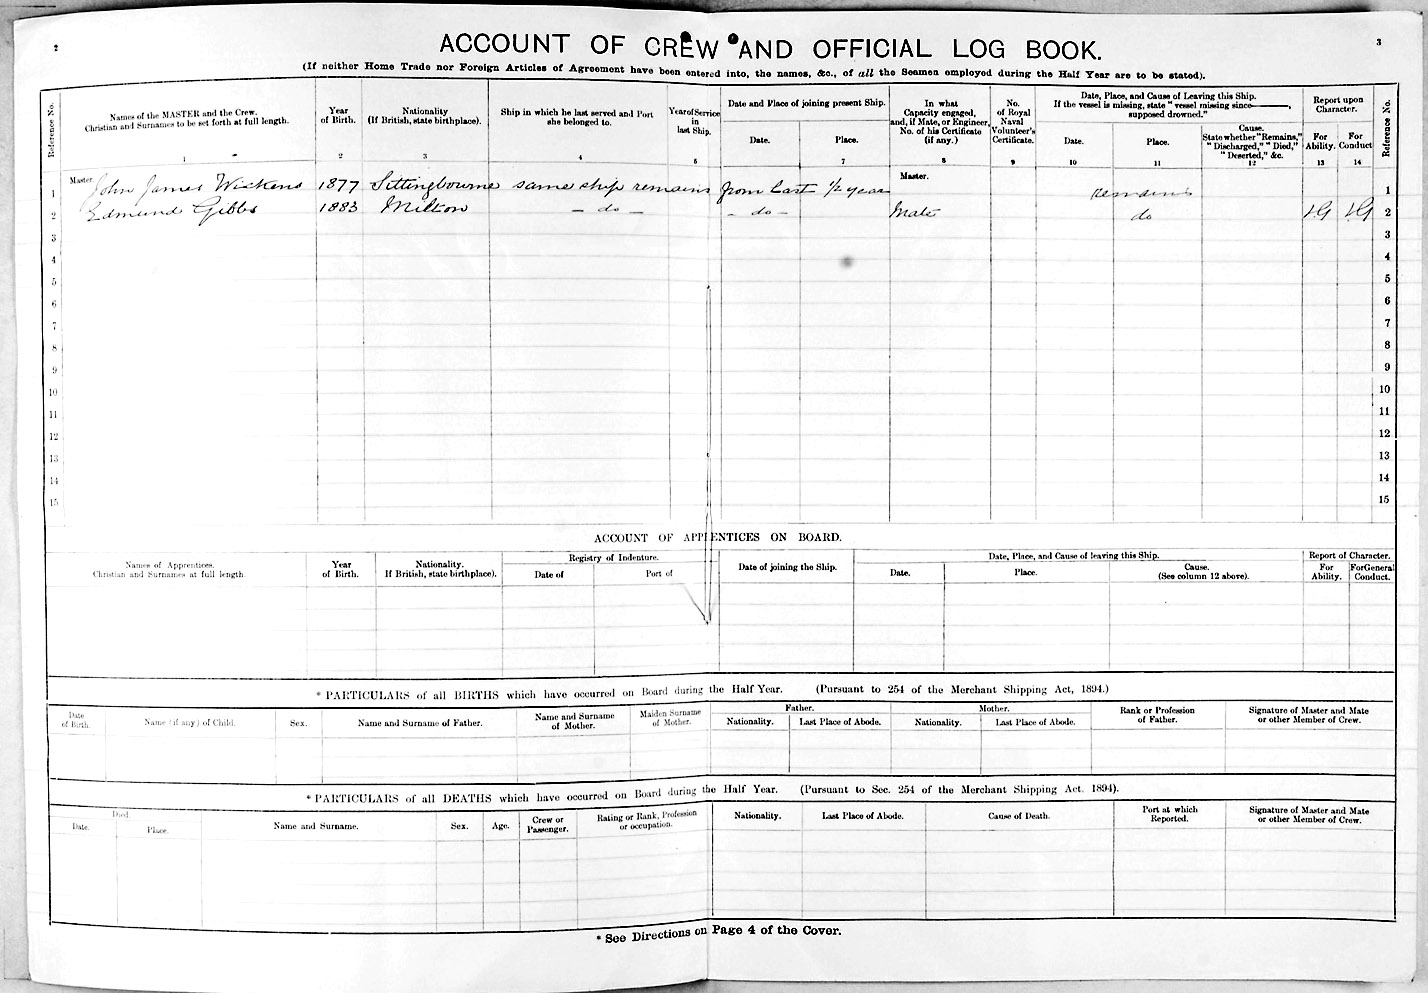 2
3
ACCOUNT OF CREW AND OFFICIAL LOG BOOK.
(If neither Home Trade nor Foreign Articles of Agreement have been entered into, the names, &c., of all the Seamen employed during the Half Year are to be stated).
Reference No.
Names of the MASTER and the Crew.
Christian and Surnames to be set forth at full length.
1
Year
of Birth.
2
Nationality
(If British, state birthplace).
3
Ship in which he last served and Port
she belonged to.
4
Year of Service
in
last Ship.
5
Date and Place of joining present Ship.
Date.
Place.
7
In what
Capacity engaged,
and, if Mate, or Engineer,
No. of his Certificate
(if any.)
8
No.
of Royal
Naval
Volunteer's
Certificate.
9
Date, Place, and Cause of Leaving this Ship.
If the vessel is missing, state "vessel missing since———,
supposed drowned."
Date.
10
Place.
11
Cause.
State whether "Remains,"
"Discharged," "Died,"
"Deserted," &c.
12
Report upon
Character.
For
Ability.
13
For
Conduct
14
Reference No.
1 Master. John James Wickens 1877 Sittingbourne same ship remains from last 1/2 year Master. remains 1
2 Edmund Gibbs 1883 Milton – do – – do – Mate do VG VG 2
3 3
4 4
5 5
6 6
7 7
8 8
9 9
10 10
11 11
12 12
13 13
14 14
15 15
ACCOUNT OF APPRENTICES ON BOARD.
Names of Apprentices.
Christian and Surnames at full length.
Year
of Birth.
Nationality.
If British, state birthplace).
Registry of Indenture.
Date of
Port of
Date of joining the Ship.
Date, Place, and Cause of leaving this Ship.
Date.
Place.
Cause.
(See column 12 above).
Report of Character.
For
Ability.
For General
Conduct.
* PARTICULARS of all BIRTHS which have occurred on Board during the Half Year. (Pursuant to 254 of the Merchant Shipping Act, 1894.)
Date
of Birth.
Name (if any) of Child.
Sex.
Name and Surname of Father.
Name and Surname
of Mother.
Maiden Surname
of Mother.
Father.
Nationality.
Last Place of Abode.
Mother.
Nationality.
Last Place of Abode.
Rank or Profession
of Father.
Signature of Master and Mate
or other Member of Crew.
* PARTICULARS of all DEATHS which have occurred on Board during the Half Year. (Pursuant to Sec. 254 of the Merchant Shipping Act. 1894).
Died
Date.
Place.
Name and Surname.
Sex.
Age.
Crew or
Passenger.
Rating or Rank, Profession
or occupation.
Nationality.
Last Place of Abode.
Cause of Death.
Port at which
Reported.
Signature of Master and Mate
or other Member of Crew.
* See Directions on Page 4 of the Cover.